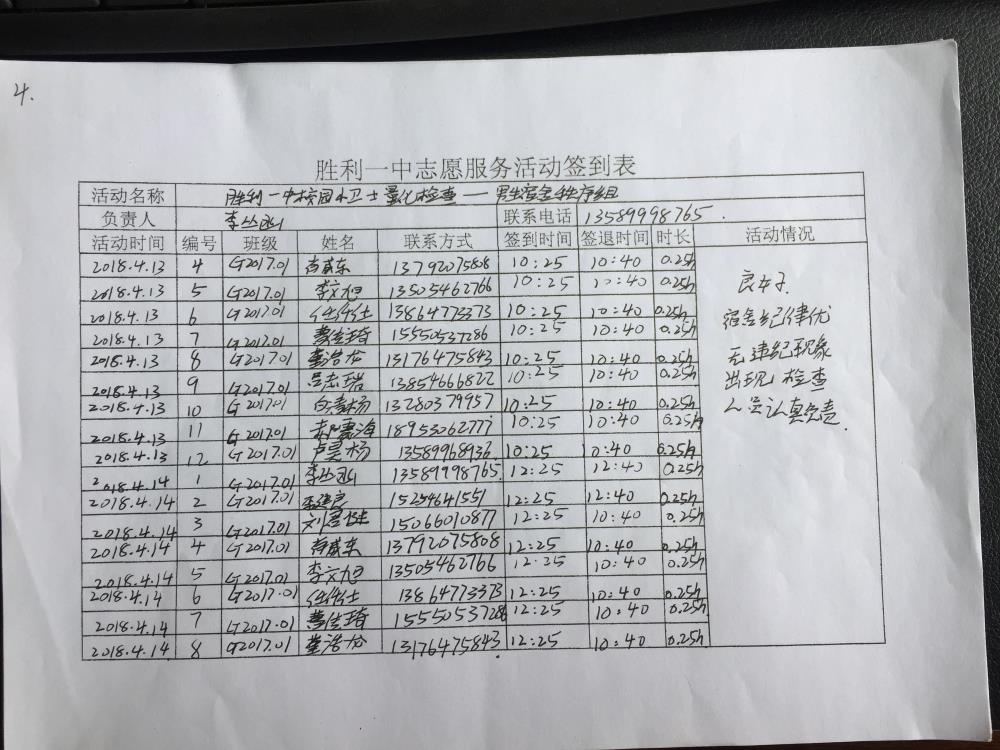 4.
胜利一中志愿服务活动签到表
活动名称 胜利一中校园小卫士量化检查——男生宿舍秩序组
负责人 李丛丞 联系电话 13589998765.
活动时间 编号 班级 姓名 联系方式 签到时间 签退时间 时长 活动情况
2018.4.13 4 G2017.01 13792075808 10:25 10:40 0.25h
2018.4.13 5 G2017.01 李文旭 13505462766 10:25 10:40 0.25h
2018.4.13 6 G2017.01 13864773373 10:25 10:40 0.25h
2018.4.13 7 G2017.01 15550537286 10:25 10:40 0.25h
2018.4.13 8 G2017.01 董浩龙 13176475843 10:25 10:40 0.25h
2018.4.13 9 G2017.01 吕志岩 13854666822 10:25 10:40 0.25h
2018.4.13 10 G2017.01 13280379957 10:25 10:40 0.25h
2018.4.13 11 G2017.01 18953062777 10:25 10:40 0.25h
2018.4.13 12 G2017.01 卢昊杨 13589968936 10:25 10:40 0.25h
2018.4.14 1 G2017.01 李丛丞 13589998765 12:25 12:40 0.25h
2018.4.14 2 G2017.01 李建良 15254641551 12:25 12:40 0.25h
2018.4.14 3 G2017.01 刘君健 15066010877 12:25 10:40 0.25h
2018.4.14 4 G2017.01 13792075808 12:25 10:40 0.25h
2018.4.14 5 G2017.01 李文旭 13505462766 12:25 10:40 0.25h
2018.4.14 6 G2017.01 13864773373 12:25 10:40 0.25h
2018.4.14 7 G2017.01 15550537286 12:25 10:40 0.25h
2018.4.14 8 G2017.01 董浩龙 13176475843 12:25 10:40 0.25h
良好.
宿舍纪律优
无违纪现象
出现,检查
人员认真负责.